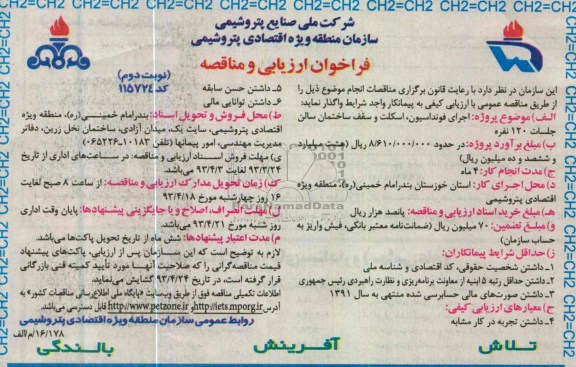 CH2=CH2=CH2=CH2=CH2=CH2=CH2=CH2=CH2=CH2=CH2
شرکت ملی صنایع پتروشیمی
سازمان منطقه ویژه اقتصادی پتروشیمی
فراخوان ارزیابی و مناقصه
(نوبت دوم)
کد ۱۱۵۷۷۴
این سازمان در نظر دارد با رعایت قانون برگزاری مناقصات انجام موضوع ذیل را
از طریق مناقصه عمومی با ارزیابی کیفی به پیمانکار واجد شرایط واگذار نماید:
الف) موضوع پروژه: اجرای فونداسیون، اسکلت و سقف ساختمان سالن
جلسات ۱۲۰ نفره
ب) مبلغ برآورد پروژه: در حدود ۸/۶۱۰/۰۰۰/۰۰۰ ریال (هشت میلیارد
و ششصد و ده میلیون ریال)
ج) مدت انجام کار: ۴ ماه
د) محل اجرای کار: استان خوزستان بندرامام خمینی(ره)، منطقه ویژه
اقتصادی پتروشیمی
هـ) مبلغ خرید اسناد ارزیابی و مناقصه: پانصد هزار ریال
و) مبلغ تضمین: ۷۰ میلیون ریال (ضمانت‌نامه معتبر بانکی، فیش واریز به
حساب سازمان)
ز) حداقل شرایط پیمانکاران:
۱ـ داشتن شخصیت حقوقی، کد اقتصادی و شناسه ملی
۲ـ داشتن حداقل رتبه ۵ ابنیه از معاونت برنامه‌ریزی و نظارت راهبردی رئیس جمهوری
۳ـ داشتن صورت‌های مالی حسابرسی شده منتهی به سال ۱۳۹۱
ح) معیارهای ارزیابی کیفی:
۴ـ داشتن تجربه در کار مشابه
۵ـ داشتن حسن سابقه
۶ـ داشتن توانایی مالی
ط) محل فروش و تحویل اسناد: بندرامام خمینی(ره)، منطقه ویژه
اقتصادی پتروشیمی، سایت یک، میدان آزادی، ساختمان نخل زرین، دفاتر
مدیریت مهندسی، امور پیمانها (تلفن ۱۰۱۸۳-۰۶۵۲۲۶)
ی) مهلت فروش اسناد ارزیابی و مناقصه: در ساعت‌های اداری از تاریخ
۹۳/۳/۲۴ لغایت ۹۳/۴/۳
ک) زمان تحویل مدارک ارزیابی و مناقصه: از ساعت ۸ صبح لغایت
۱۶ روز چهارشنبه مورخ ۹۳/۴/۱۸
ل) مهلت انصراف، اصلاح و یا جایگزینی پیشنهادها: پایان وقت اداری
روز شنبه مورخ ۹۳/۴/۲۱
م) مدت اعتبار پیشنهادها: شش ماه از تاریخ تحویل پاکت‌ها می‌باشد.
لازم به توضیح است که این سازمان پس از ارزیابی، پاکت‌های پیشنهاد
قیمت مناقصه‌گرانی را که صلاحیت آنها مورد تأیید کمیته فنی بازرگانی
قرار گرفته است، در تاریخ ۹۳/۴/۲۴ گشایش می‌نماید.
اطلاعات تکمیلی مناقصه فوق از طریق وب‌سایت «پایگاه ملی اطلاع‌رسانی مناقصات کشور» به
آدرس http://iets.mporg.ir و http://www.petzone.ir قابل دسترسی می‌باشد.
روابط عمومی سازمان منطقه ویژه اقتصادی پتروشیمی
۱۶/۱۷۸/م/الف
تلاش آفرینش بالندگی